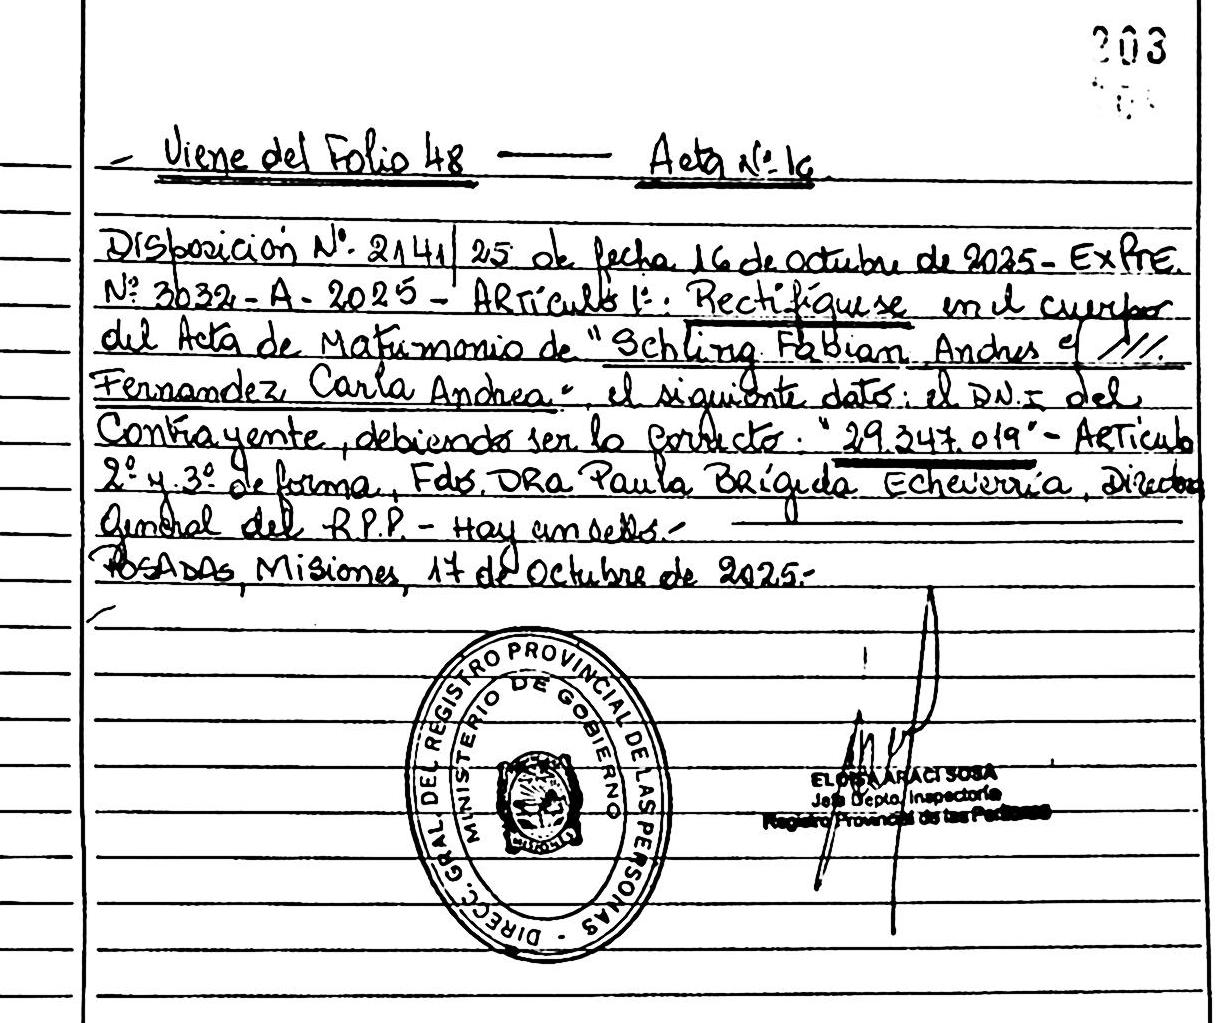 203
- Viene del Folio 48 — Acta Nº 16
Disposición Nº 2141/25 de fecha 16 de octubre de 2025 - ExPTE.
Nº 3032 - A - 2025 - ARTículo 1º: Rectifíquese en el cuerpo
del Acta de Matrimonio de "Schling Fabian Andres y ///.
Fernandez Carla Andrea", el siguiente dato: el D.N.I del
Contrayente, debiendo ser lo correcto: "29.347.019" - ARTículo
2º y 3º de forma, Fdo. DRa Paula BRígida Echeverría, Directora
General del R.P.P. - Hay un sello.-
POSADAS, Misiones, 17 de Octubre de 2025.-
DIRECC. GRAL. DEL REGISTRO PROVINCIAL DE LAS PERSONAS -
MINISTERIO DE GOBIERNO
ELOISA ARACI SOSA
Jefa Depto. Inspectoría
Registro Provincial de las Personas